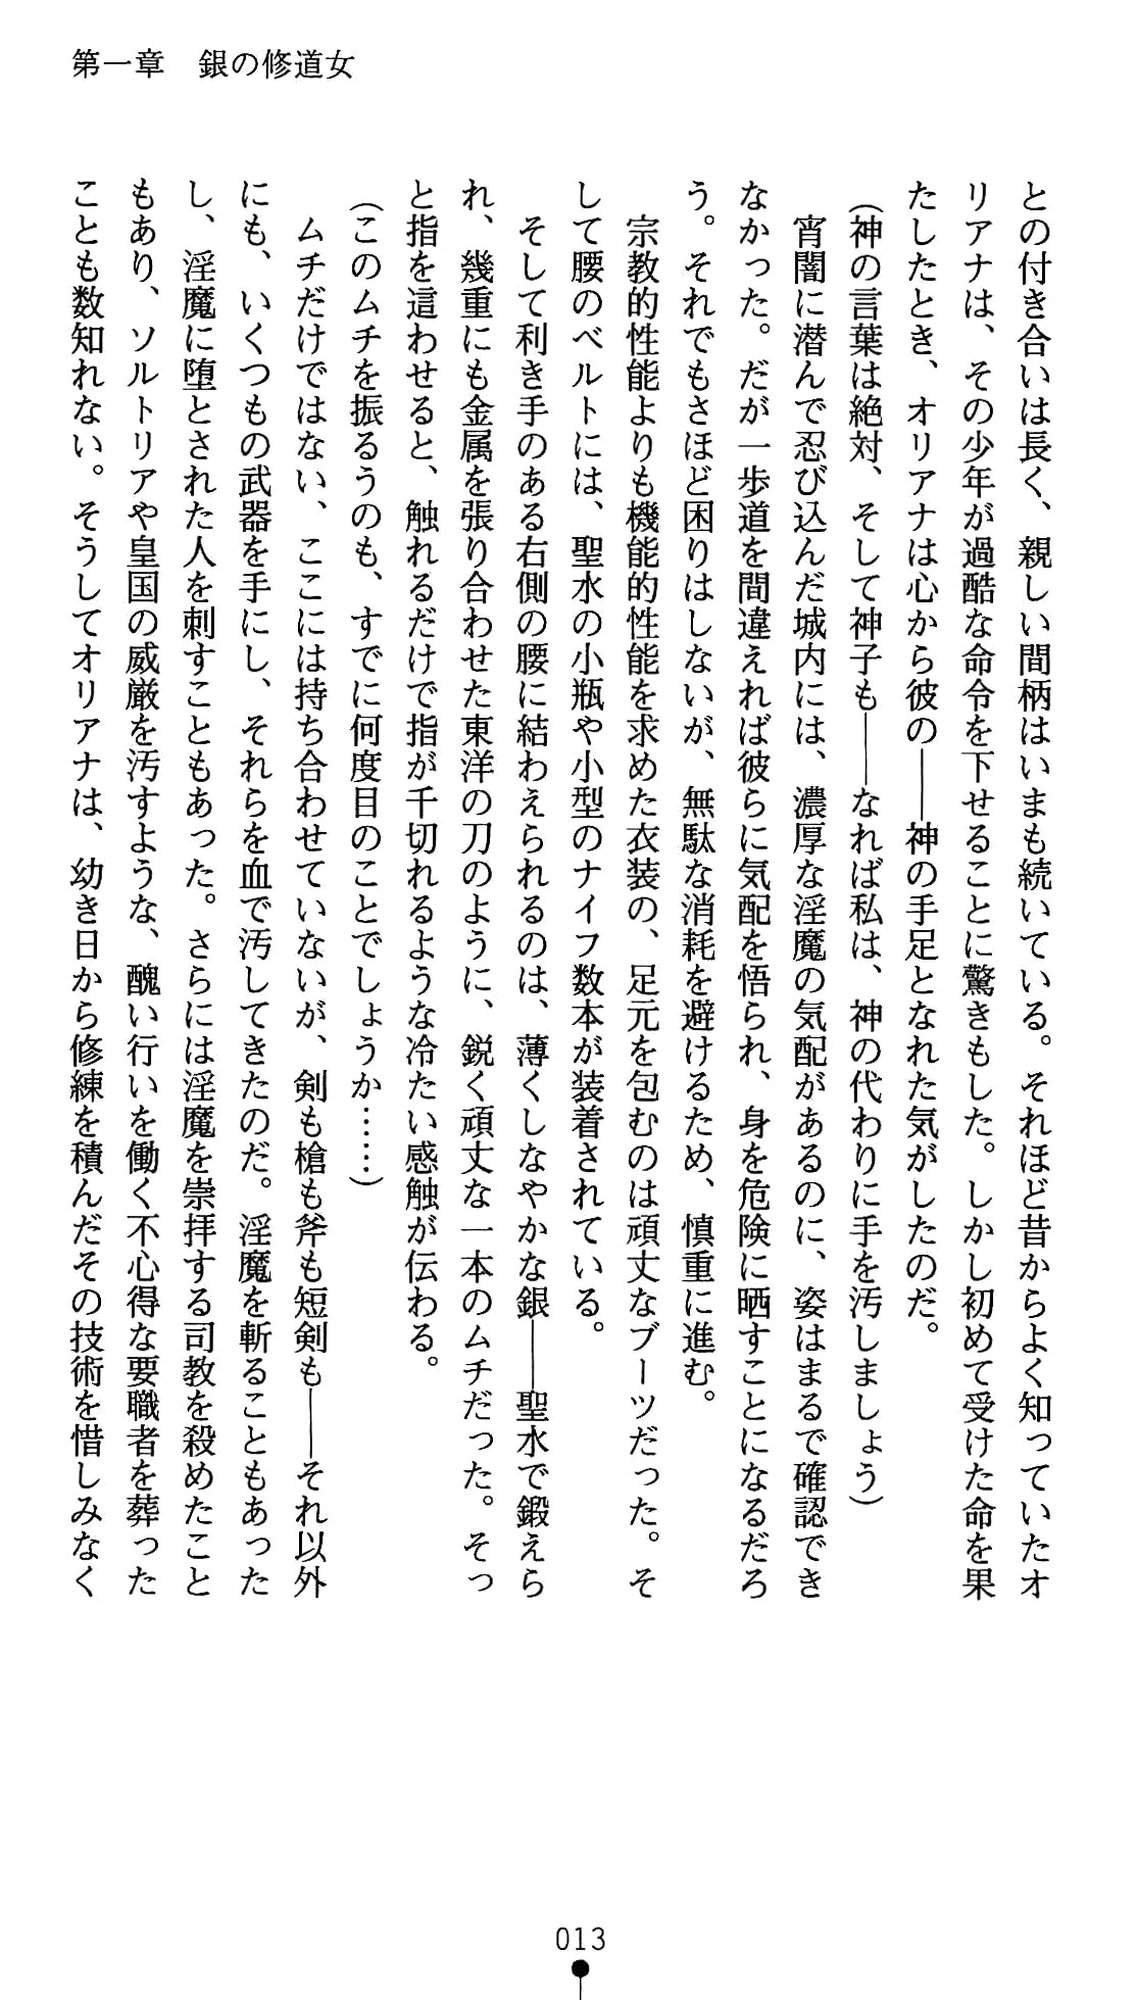 第一章　銀の修道女
との付き合いは長く、親しい間柄はいまも続いている。それほど昔からよく知っていたオ
リアナは、その少年が過酷な命令を下せることに驚きもした。しかし初めて受けた命を果
たしたとき、オリアナは心から彼の――神の手足となれた気がしたのだ。
（神の言葉は絶対、そして神子も――なれば私は、神の代わりに手を汚しましょう）
　宵闇に潜んで忍び込んだ城内には、濃厚な淫魔の気配があるのに、姿はまるで確認でき
なかった。だが一歩道を間違えれば彼らに気配を悟られ、身を危険に晒すことになるだろ
う。それでもさほど困りはしないが、無駄な消耗を避けるため、慎重に進む。
　宗教的性能よりも機能的性能を求めた衣装の、足元を包むのは頑丈なブーツだった。そ
して腰のベルトには、聖水の小瓶や小型のナイフ数本が装着されている。
　そして利き手のある右側の腰に結わえられるのは、薄くしなやかな銀――聖水で鍛えら
れ、幾重にも金属を張り合わせた東洋の刀のように、鋭く頑丈な一本のムチだった。そっ
と指を這わせると、触れるだけで指が千切れるような冷たい感触が伝わる。
（このムチを振るうのも、すでに何度目のことでしょうか……）
　ムチだけではない、ここには持ち合わせていないが、剣も槍も斧も短剣も――それ以外
にも、いくつもの武器を手にし、それらを血で汚してきたのだ。淫魔を斬ることもあった
し、淫魔に堕とされた人を刺すこともあった。さらには淫魔を崇拝する司教を殺めたこと
もあり、ソルトリアや皇国の威厳を汚すような、醜い行いを働く不心得な要職者を葬った
ことも数知れない。そうしてオリアナは、幼き日から修練を積んだその技術を惜しみなく
013